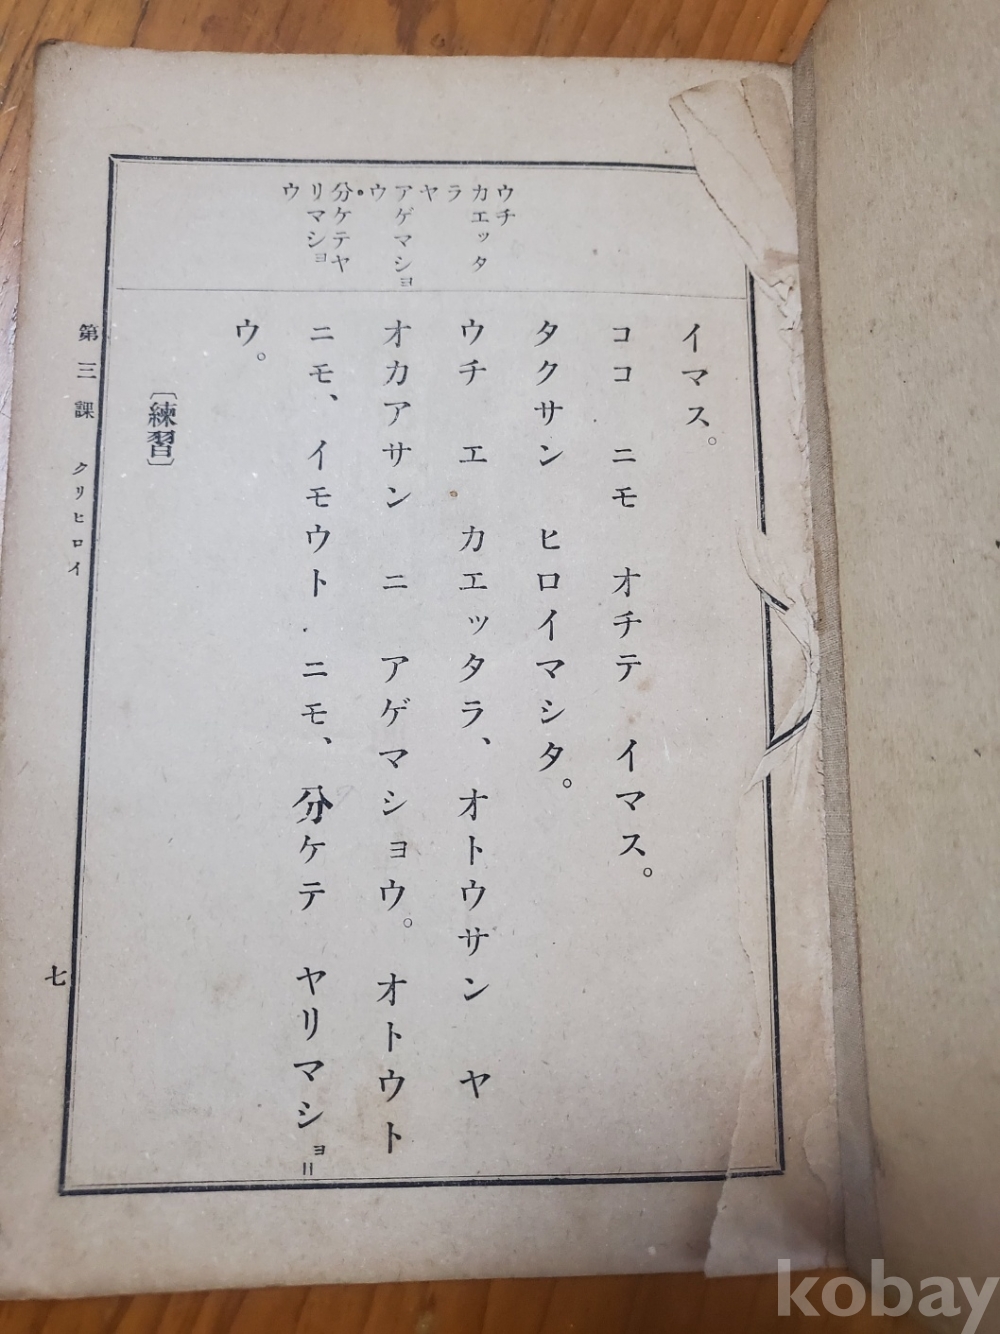 ウチ
カエッタ
ラ
ヤ
アゲマショ
ウ
分ケテヤ
リマショ
ウ
イマス。
ココ ニモ オチテ イマス。
タクサン ヒロイマシタ。
ウチ エ カエッタラ、オトウサン ヤ
オカアサン ニ アゲマショウ。 オトウト
ニモ、イモウト ニモ、分ケテ ヤリマショ=
ウ。
〔練習〕
第三課 クリヒロイ
七
kobay